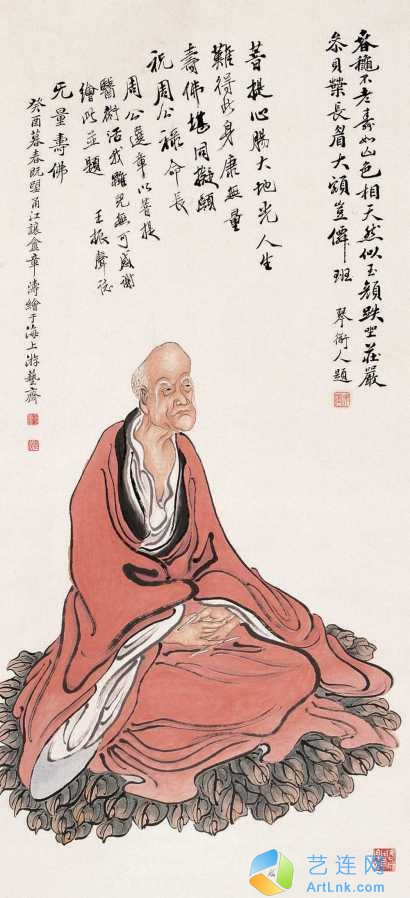 不老壽如山色相天然似玉顏趺坐莊嚴
參貝葉長眉大頷豈儕班
琴衖人題
菩提心腸大地光人生
難得此身康無量
壽佛堪同擬願
祝周公祿命長
周公選章以菩提
醫術活我雛兒無可感謝
繪此並題
王振聲誌
无量壽佛
癸酉暮春既望甬江讓盦章濤繪于海上游藝齋
艺连网
ArtLnk.com